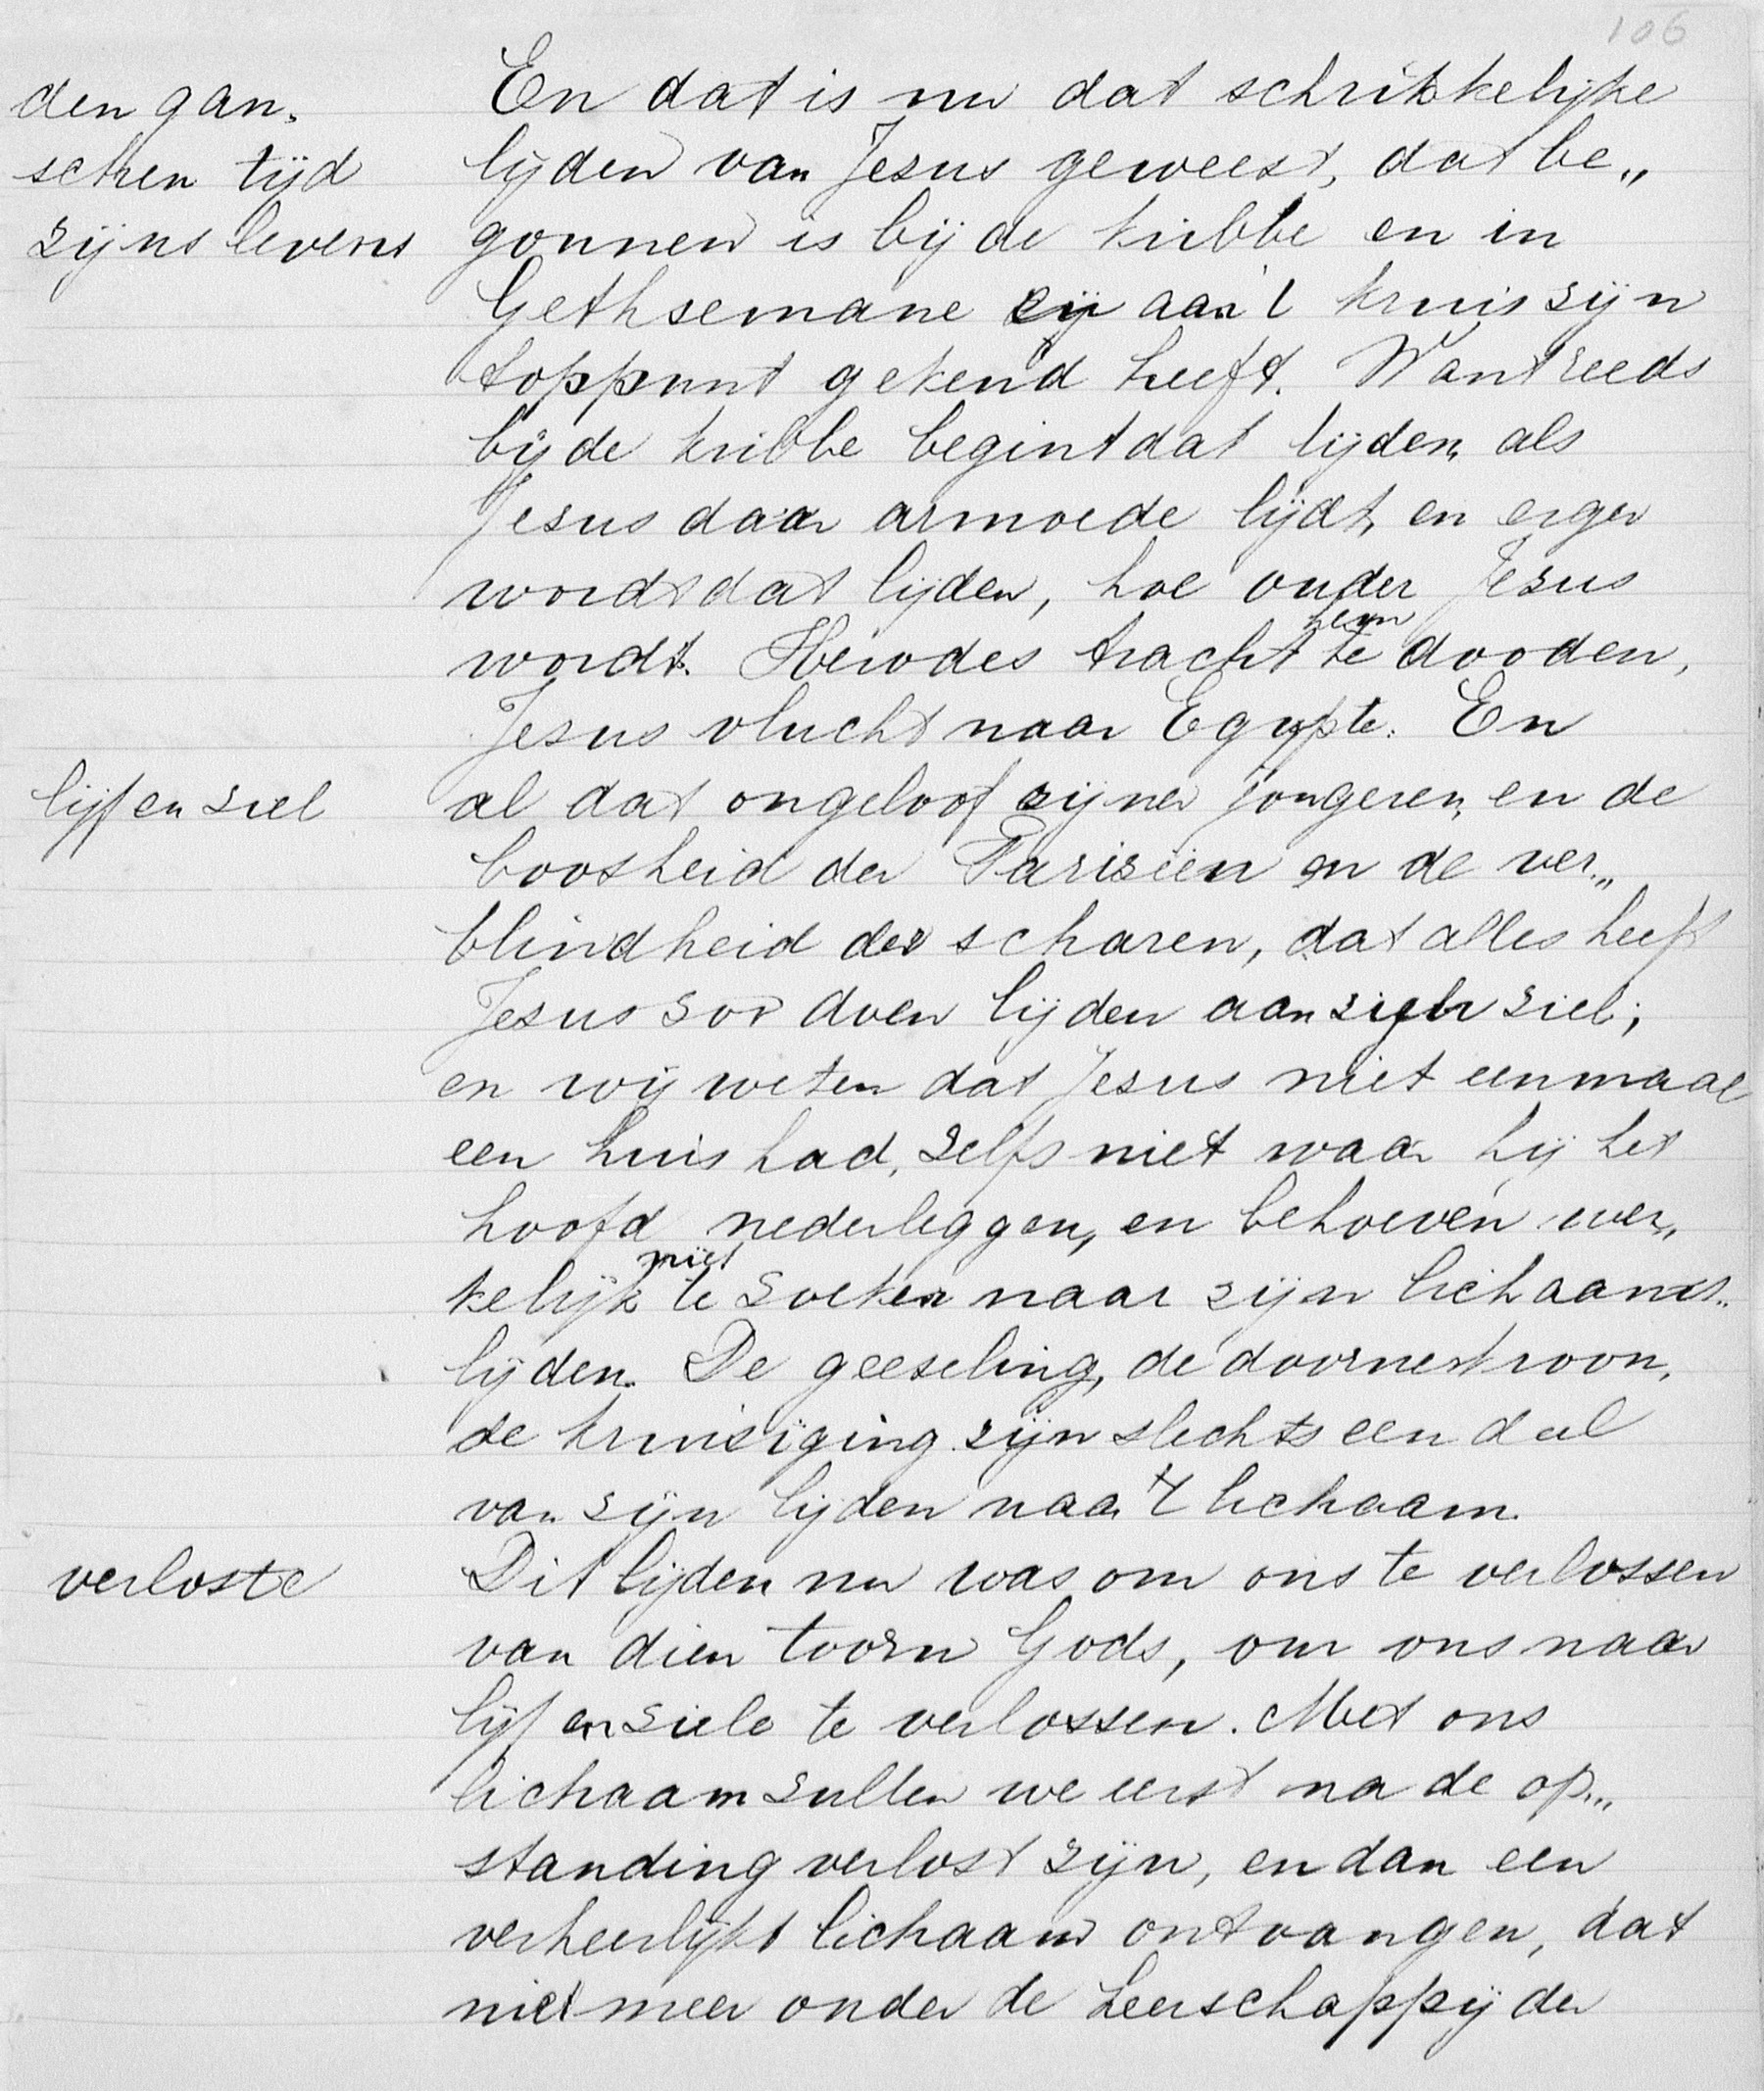 106
den gan„
schen tijd
zijns levens
En dat is nu dat schrikkelijke
lijden van Jezus geweest, dat be„
gonnen is bij de kribbe en in
Gethsemane en aan 't kruis zijn
toppunt gekend heeft. Want reeds
bij de kribbe begint dat lijden, als
Jezus daar armoede lijdt, en erger
wordt dat lijden, hoe ouder Jezus
hem
wordt. Herodes tracht te dooden,
Jezus vlucht naar Egypte. En
lijf en ziel
al dat ongeloof zijner jongeren, en de
boosheid der Fariziën en de ver„
blindheid der scharen, dat alles heeft
Jezus zoo doen lijden aan zijn ziel;
en wij weten dat Jezus niet eenmaal
een huis had, zelfs niet waar hij het
hoofd nederleggen, en behoeven wer„
niet
kelijk te zoeken naar zijn lichaams„
lijden. De geeseling, de doornenkroon,
de kruisiging zijn slechts een deel
van zijn lijden naar 't lichaam.
verloste
Dit lijden nu was om ons te verlossen
van dien toorn Gods, om ons naar
lijf en ziele te verlossen. Met ons
lichaam zullen we eerst na de op„
standing verlost zijn, en dan een
verheerlijkt lichaam ontvangen, dat
niet meer onder de heerschappij der